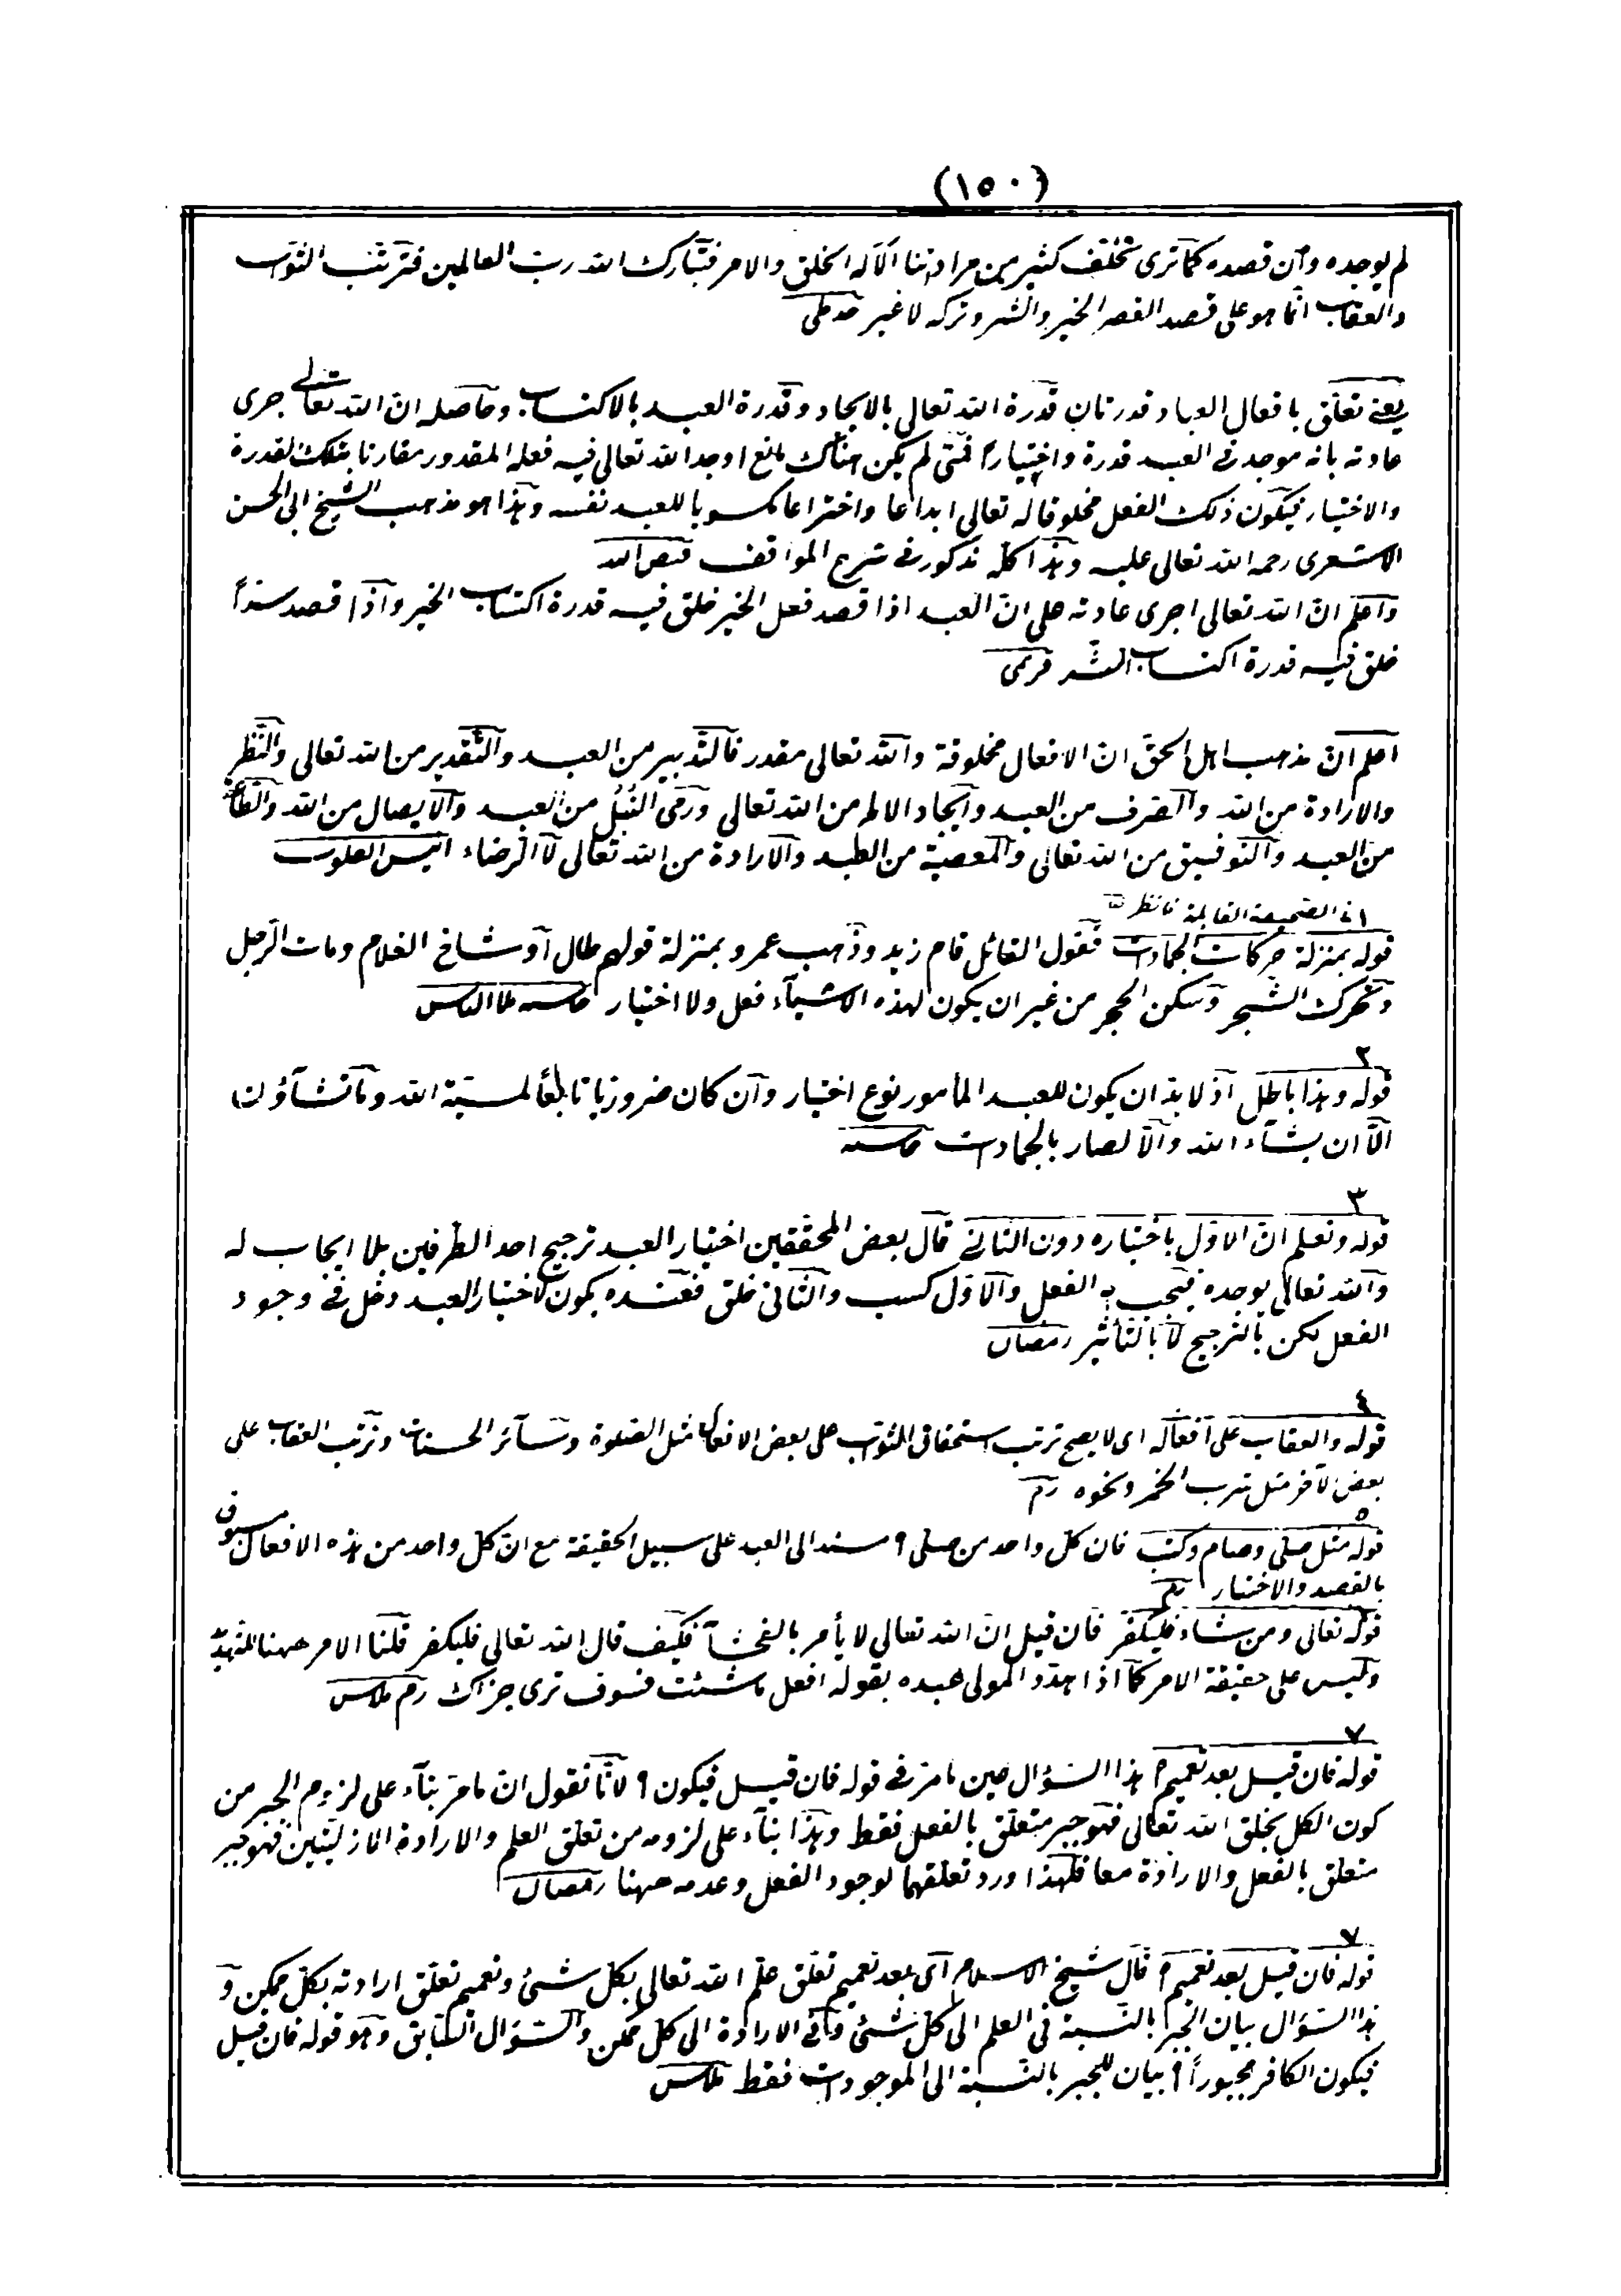 (١٥٠)
لم يوجده وان قصده كما ترى تخلف كثير من مراداتنا الا له الخلق والامر فتبارك الله رب العالمين فترتب الثواب
والعقاب انما هو على قصد الخير والشر وتركه لا غير
يعني تعلق بافعال العباد قدرتان قدرة الله تعالى بالايجاد وقدرة العبد بالاكتساب وحاصله ان الله تعالى جرى
عادته بانه موجد في العبد قدرة واختيارا فمتى لم يكن هناك مانع اوجد الله تعالى فيه فعله المقدور مقارنا بتلك القدرة
والاختيار فيكون ذلك الفعل مخلوقا له تعالى ابداعا واختراعا مكسوبا للعبد نفسه وهذا هو مذهب الشيخ ابى الحسن
الاشعرى رحمه الله تعالى عليه وهذا كله مذكور في شرح المواقف فيض الله
واعلم ان الله تعالى اجرى عادته على ان العبد اذا قصد فعل الخير خلق فيه قدرة اكتساب الخير واذا قصد شراً
خلق فيه قدرة اكتساب الشر قرمى
اعلم ان مذهب اهل الحق ان الافعال مخلوقة والله تعالى مقدر فالتدبير من العبد والتقدير من الله تعالى والنظر
والارادة من الله والضرب من العبد وايجاد الالم من الله تعالى ورمى النبل من العبد والايصال من الله والطاعة
من العبد والتوفيق من الله تعالى والمعصية من العبد والارادة من الله تعالى لا الرضاء انيس القلوب
١ في الصحيفة القابلة فانظر
قوله بمنزلة حركات الجمادات فقول القائل قام زيد وذهب عمرو بمنزلة قولهم طال او شاخ الغلام ومات الرجل
وتحرك الشجر وسكن الحجر من غير ان يكون لهذه الاشياء فعل ولا اختيار
٢
قوله وهذا باطل اذ لا بد ان يكون للعبد المأمور نوع اختيار وان كان ضروريا تابعاً لمشية الله وما تشاؤن
الا ان يشاء الله والا لصار بالجمادات
٣
قوله ونعلم ان الاول باختياره دون الثاني قال بعض المحققين اختيار العبد ترجيح احد الطرفين بلا ايجاب له
والله تعالى يوجده فيجب به الفعل والاول كسب والثاني خلق فعنده يكون لاختيار العبد دخل في وجود
الفعل لكن بالترجيح لا بالتأثير رمضان
٤
قوله والعقاب على افعاله اى لا يصح ترتب استحقاق الثواب على بعض الافعال مثل الصلوة وسائر الحسنات وترتب العقاب على
بعض الآخر مثل شرب الخمر ونحوه رم
٥
قوله مثل صلى وصام وكتب فان كل واحد من صلى ؟ مسند الى العبد على سبيل الحقيقة مع ان كل واحد من هذه الافعال مسبوق
بالقصد والاختيار رم
قوله تعالى ومن شاء فليكفر فان قيل ان الله تعالى لا يأمر بالفحشاء فكيف قال الله تعالى فليكفر قلنا الامر ههنا للتهديد
وليس على حقيقة الامر كما اذا هدد المولى عبده بقوله افعل ما شئت فسوف ترى جزاك رم
٧
قوله فان قيل بعد تعميم ؟ هذا السؤال عين ما مر في قوله فان قيل فيكون ؟ لانا نقول ان ما مر بناء على لزوم الجبر من
كون الكل بخلق الله تعالى فهو جبر متعلق بالفعل فقط وهذا بناء على لزومه من تعلق العلم والارادة الازليتين فهو جبر
متعلق بالفعل والارادة معا فلهذا ورد تعلقهما لوجود الفعل وعدمه ههنا رمضان
٧
قوله فان قيل بعد تعميم ؟ قال شيخ الاسلام اى بعد تعميم تعلق علم الله تعالى بكل شئ وتعميم تعلق ارادته بكل ممكن و
هذا السؤال بيان الجبر بالنسبة في العلم الى كل شئ وفي الارادة الى كل ممكن والسؤال السابق وهو قوله فان قيل
فيكون الكافر مجبوراً ؟ بيان للجبر بالنسبة الى الموجودات فقط